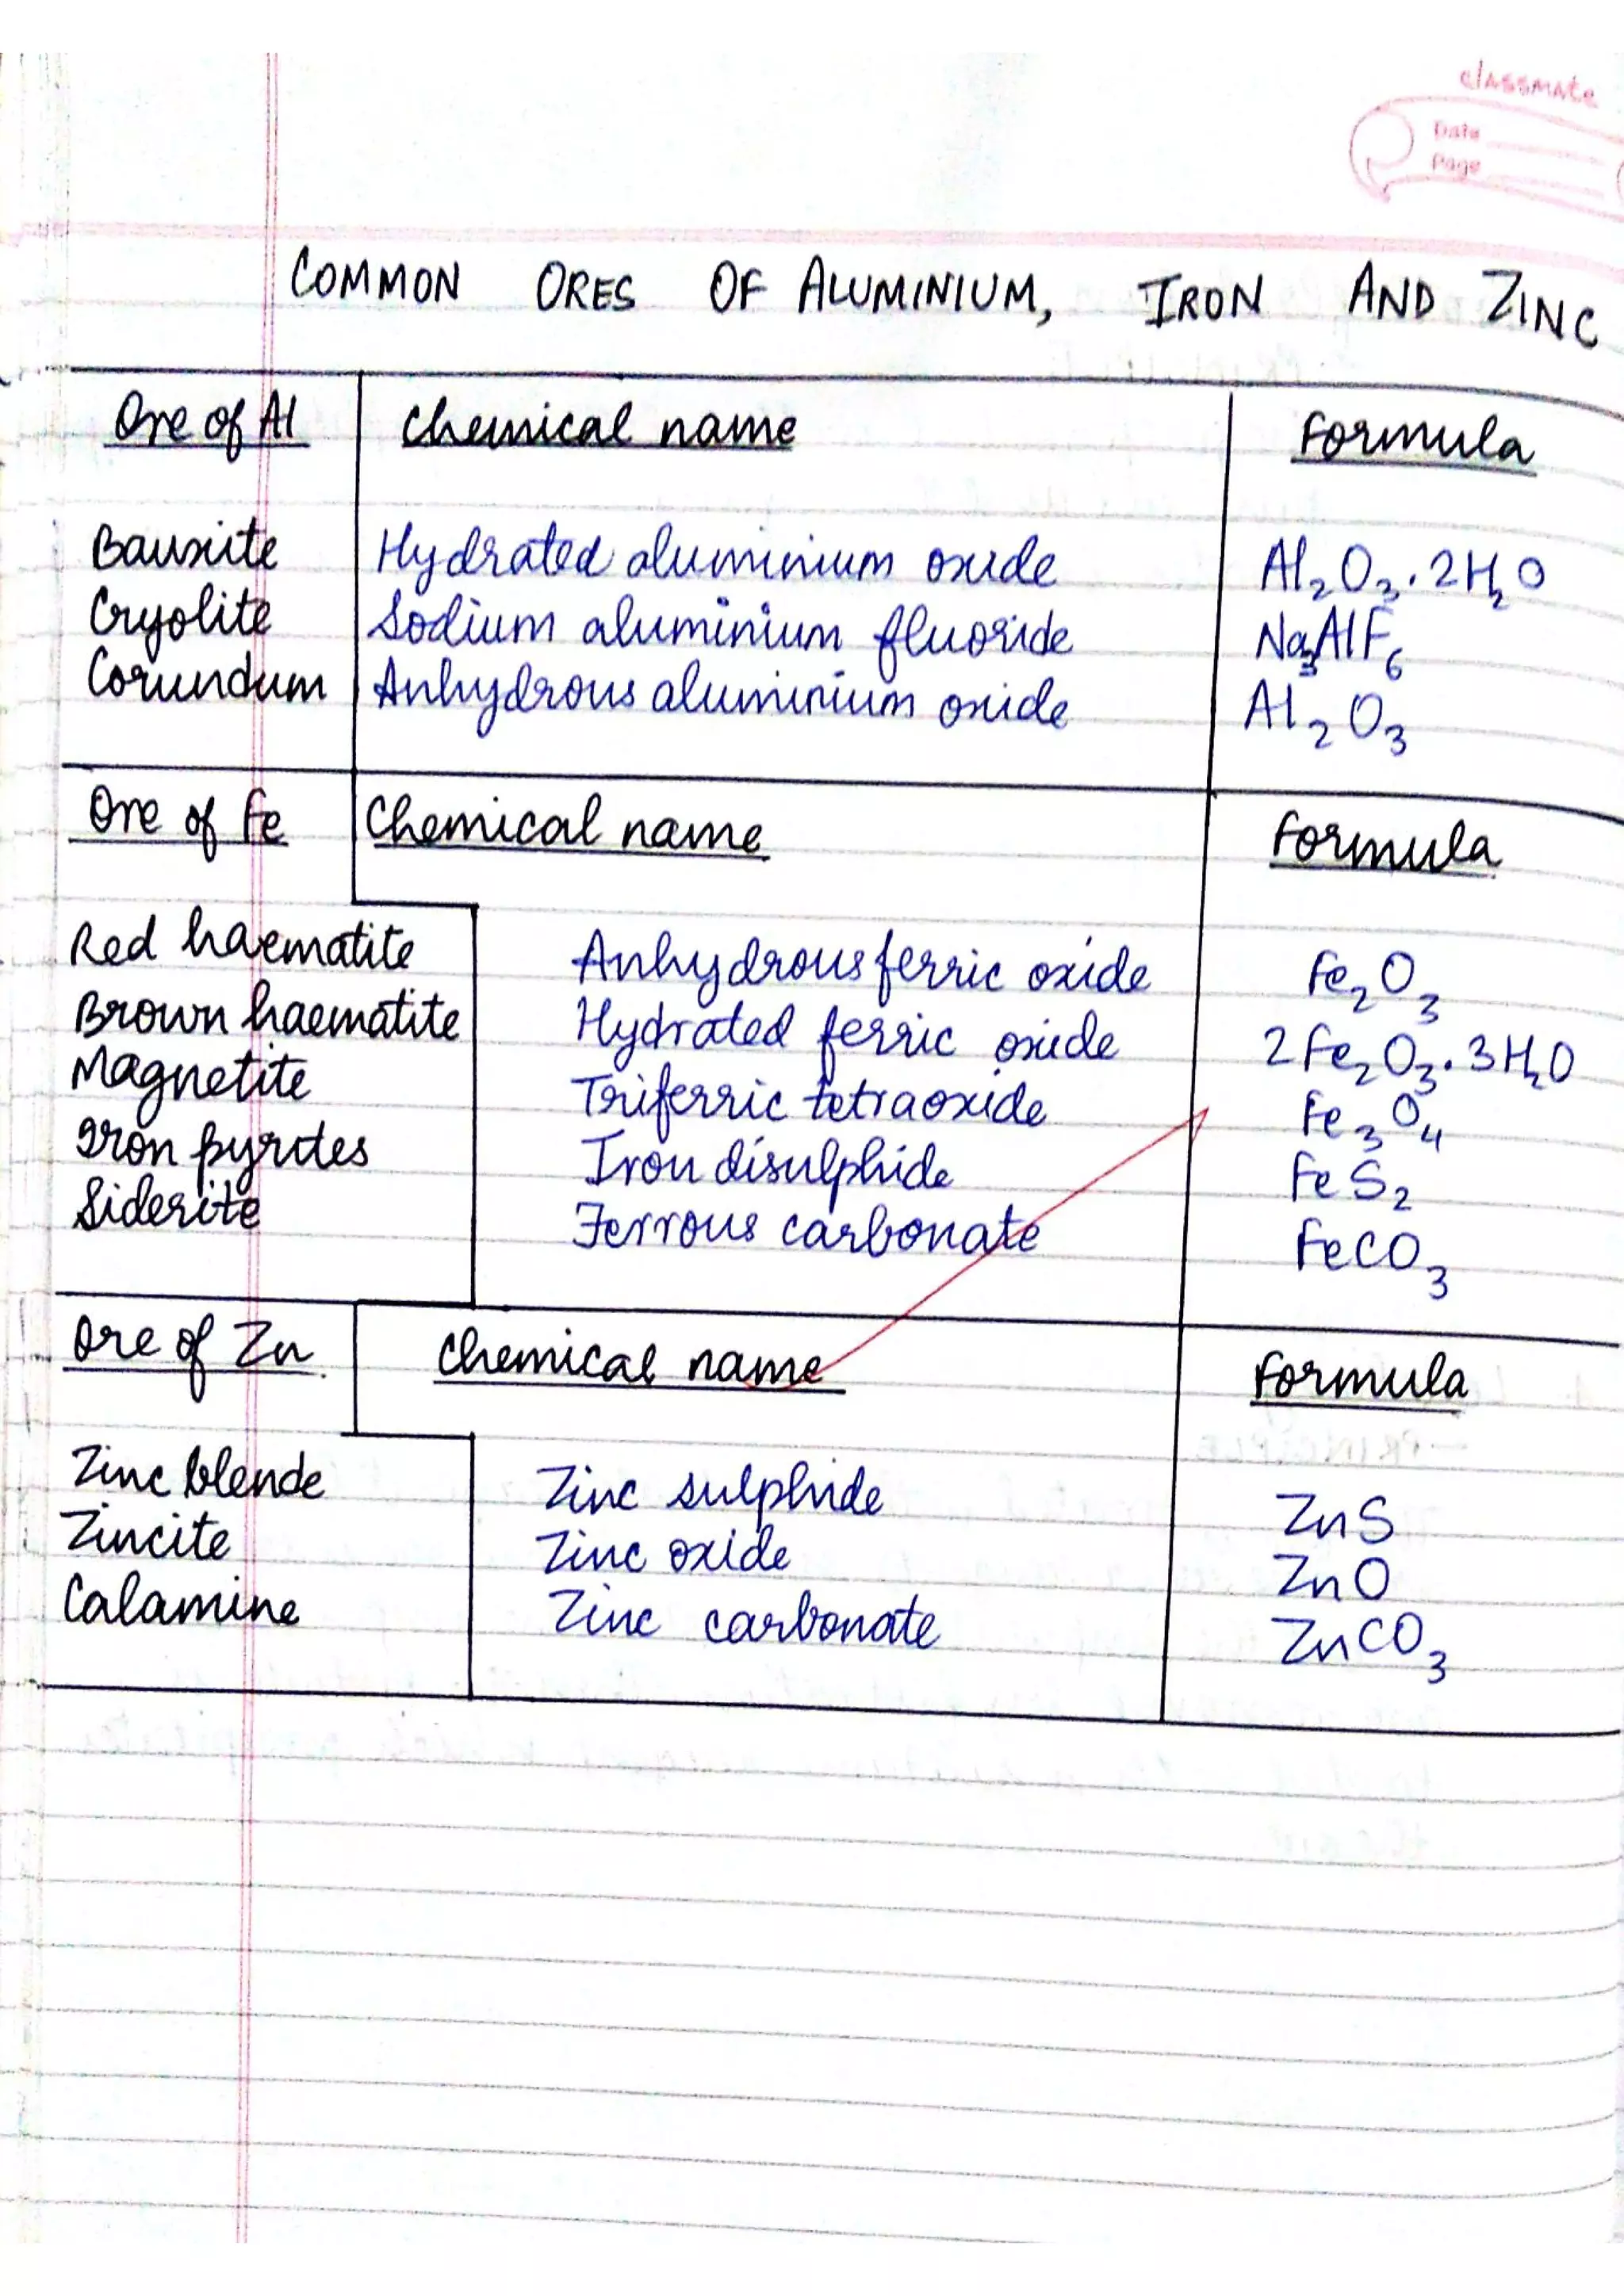 classmate
Date
Page
COMMON ORES OF ALUMINIUM, IRON AND ZINC
Ore of Al Chemical name Formula
Bauxite Hydrated aluminium oxide Al₂O₃.2H₂O
Cryolite Sodium aluminium fluoride Na₃AlF₆
Corundum Anhydrous aluminium oxide Al₂O₃
Ore of Fe Chemical name Formula
Red haematite Anhydrous ferric oxide Fe₂O₃
Brown haematite Hydrated ferric oxide 2Fe₂O₃.3H₂O
Magnetite Triferric tetraoxide Fe₃O₄
Iron pyrites Iron disulphide FeS₂
Siderite Ferrous carbonate FeCO₃
Ore of Zn. Chemical name Formula
Zinc blende Zinc sulphide ZnS
Zincite Zinc oxide ZnO
Calamine Zinc carbonate ZnCO₃